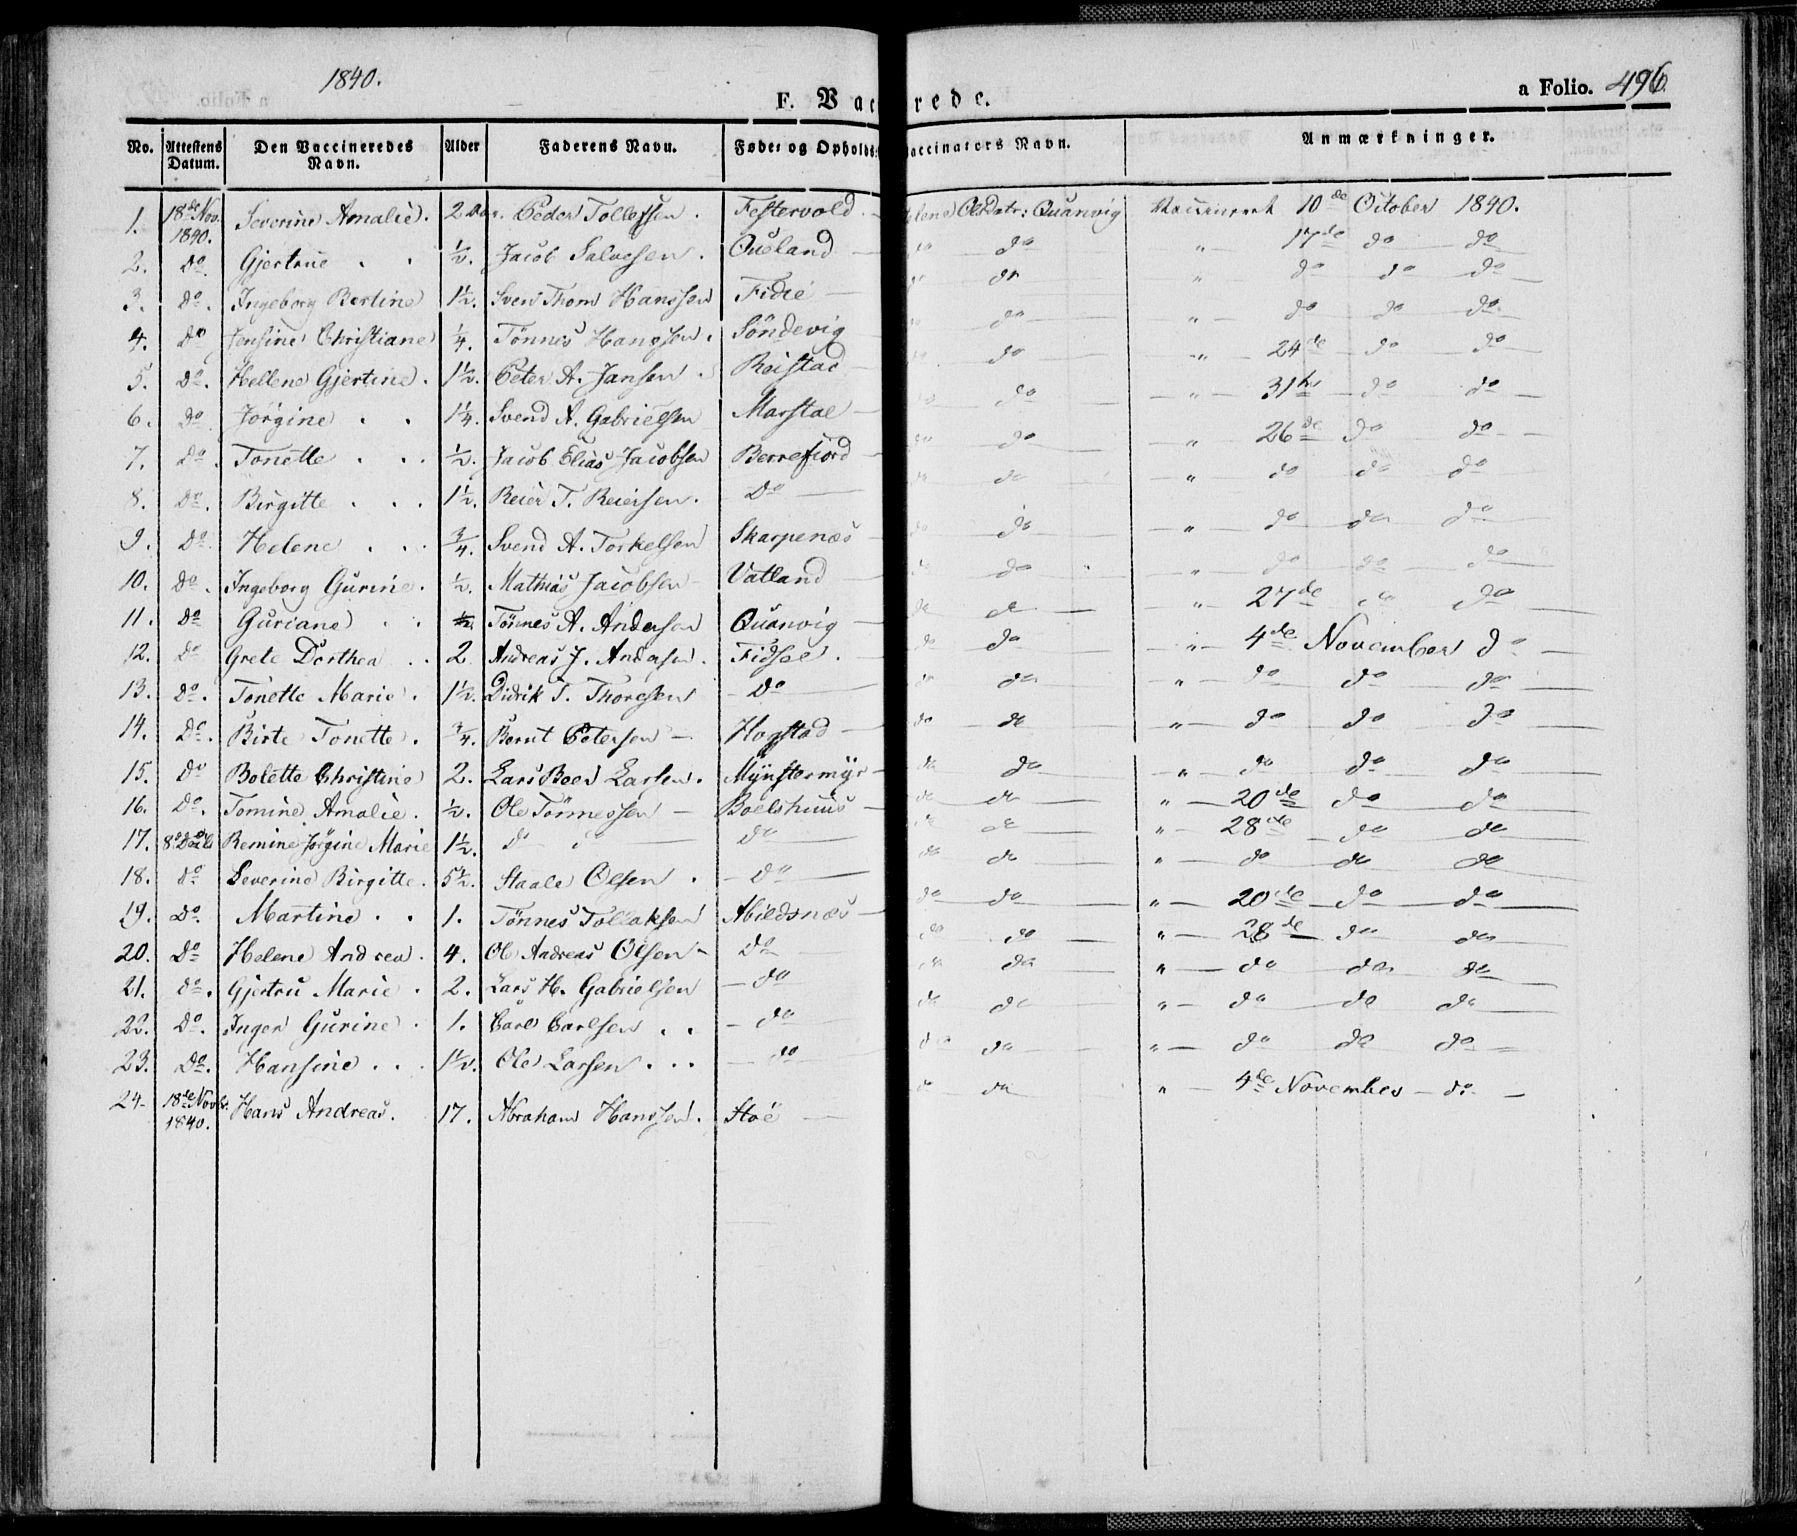 1840.
F. Vac rede.
a Folio. 496
No. Attestens Datum. Den Vaccineredes Navn. Alder Faderens Navn. Føde- og Opholds- accinators Navn. Anmærkninger.
1. 18de Nov. 1840. Severine Amalie. 2 Peder Tollefsen. Festervold. elene Olsdatr: Quanvig Vaccineret 10de October 1840.
2. Do. Gjertrue ½. Jacob Salvesen. Oueland do do " 17de do do
3. Do. Ingeborg Bertine 1½. Sven Thom Hanssen Fidie do do " do do do
4. Do Jensine Christiane ¼. Tønnes Hansen. Søndevig do do " do do do
5. Do. Hellene Gjertine. 1½. Peter A. Jansen. Reistad do do " 24de do do
6. do Jørgine 1¼. Svend A. Gabrielsen Marstad do do " 31te do do
7. Do. Tonette ½. Jacob Elias Jacobsen Berrefiord do do " 26de do do
8. Do. Birgitte 1½. Reier T. Reiersen. Do do do " do do do
9. Do. Helene ¾. Svend A. Torkelsen Skarpenæs do do " do do do
10. Do. Ingeborg Gurine. ½. Mathias Jacobsen Vatland do do " do do do
11. Do Guriane ½. Tønnes A. Andersen Quanvig do do " 27de do do
12. Do Grete Dorthea 2. Andreas J. Andersen. Fidsel. do do " 4de November do
13. Do. Tonette Marie. 1½. Didrik T. Thoresen Do do do " do do do
14. Do. Birte Tonette. ¾. Bernt Petersen Hogstad do do " do do do
15. Do Bolette Christine 2. Lars Beer Larsen. Mynstermyr do do " do do do
16. Do. Tomine Amalie. ½. Ole Tønnessen Boelshuus do do " 20de do do
17. 8de Remine Jørgine Marie 1½. do do do do do " 28de do do
18. do Severine Birgitte. 5½. Staale Olsen. Do do do " do do do
19. Do. Martine 1. Tønnes Tollaksen Abildsnæs do do " 20de do do
20. Do Helene Andrea. 4. Ole Andreas Olsen Do do do " 28de do do
21. do. Gjertru Marie. 2. Lars H. Gabrielsen do do do " do do do
22. Do. Inger Gurine. 1. Carl Carlsen do do do " do do do
23. Do. Hansine 1½. Ole Larsen do do do " do do do
24. 18de Novbr. 1840. Hans Andreas. 17. Abraham Hanssen. Stoe do do " 4de November do.